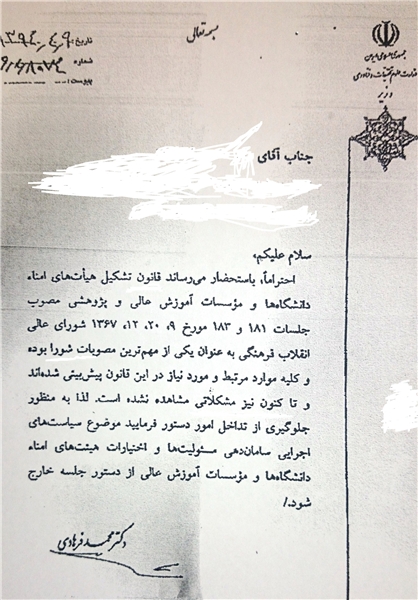 بسمه تعالی
جمهوری اسلامی ایران
وزارت علوم، تحقیقات و فناوری
وزیر
تاریخ: ۱۳۹۴۰۴۰۹
شماره
پیوست:
جناب آقای
سلام علیکم،
احتراماً، باستحضار می‌رساند قانون تشکیل هیأت‌های امناء
دانشگاه‌ها و مؤسسات آموزش عالی و پژوهشی مصوب
جلسات ۱۸۱ و ۱۸۳ مورخ ۹، ۲۰، ۱۲، ۱۳۶۷ شورای عالی
انقلاب فرهنگی به عنوان یکی از مهم‌ترین مصوبات شورا بوده
و کلیه موارد مرتبط و مورد نیاز در این قانون پیش‌بیتی شده‌اند
و تا کنون نیز مشکلاتی مشاهده نشده است. لذا به منظور
جلوگیری از تداخل امور دستور فرمایید موضوع سیاست‌های
اجرایی سامان‌دهی مسئولیت‌ها و اختیارات هیئت‌های امناء
دانشگاه‌ها و مؤسسات آموزش عالی از دستور جلسه خارج
شود./
دکتر محمد فرهادی